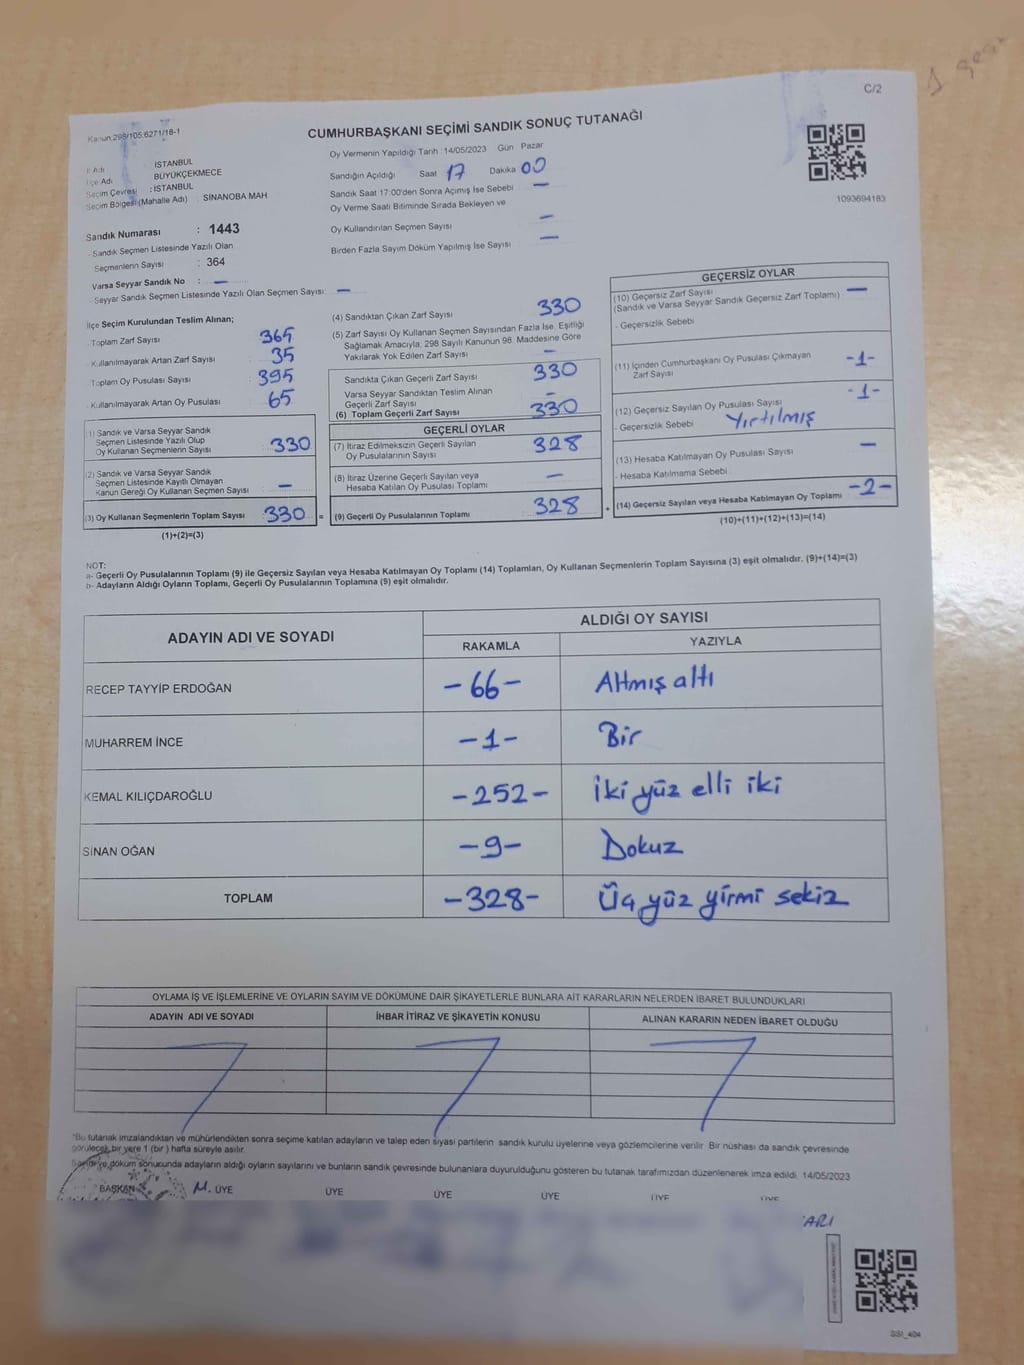 C/2
Kanun:298/105.6271/18-1
CUMHURBAŞKANI SEÇİMİ SANDIK SONUÇ TUTANAĞI
İl Adı : İSTANBUL
İlçe Adı BÜYÜKÇEKMECE
Seçim Çevresi : İSTANBUL
Seçim Bölgesi (Mahalle Adı) : SİNANOBA MAH
Oy Vermenin Yapıldığı Tarih :14/05/2023 Gün Pazar
Sandığın Açıldığı Saat 17 Dakika 00
Sandık Saat 17:00'den Sonra Açımış İse Sebebi —
Oy Verme Saati Bitiminde Sırada Bekleyen ve
Oy Kullandırılan Seçmen Sayısı —
Birden Fazla Sayım Döküm Yapılmış İse Sayısı —
1093694183
Sandık Numarası : 1443
- Sandık Seçmen Listesinde Yazılı Olan
Seçmenlerin Sayısı : 364
Varsa Seyyar Sandık No : —
- Seyyar Sandık Seçmen Listesinde Yazılı Olan Seçmen Sayısı: —
İlçe Seçim Kurulundan Teslim Alınan;
- Toplam Zarf Sayısı 365
- Kullanılmayarak Artan Zarf Sayısı 35
- Toplam Oy Pusulası Sayısı 395
- Kullanılmayarak Artan Oy Pusulası 65
(1) Sandık ve Varsa Seyyar Sandık
Seçmen Listesinde Yazılı Olup
Oy Kullanan Seçmenlerin Sayısı 330
(2) Sandık ve Varsa Seyyar Sandık
Seçmen Listesinde Kayıtlı Olmayan
Kanun Gereği Oy Kullanan Seçmen Sayısı —
(3) Oy Kullanan Seçmenlerin Toplam Sayısı 330 =
(1)+(2)=(3)
(4) Sandıktan Çıkan Zarf Sayısı 330
(5) Zarf Sayısı Oy Kullanan Seçmen Sayısından Fazla İse, Eşitliği
Sağlamak Amacıyla, 298 Sayılı Kanunun 98. Maddesine Göre
Yakılarak Yok Edilen Zarf Sayısı —
Sandıkta Çıkan Geçerli Zarf Sayısı 330
Varsa Seyyar Sandıktan Teslim Alınan
Geçerli Zarf Sayısı —
(6) Toplam Geçerli Zarf Sayısı 330
GEÇERLİ OYLAR
(7) İtiraz Edilmeksizin Geçerli Sayılan
Oy Pusulalarının Sayısı 328
(8) İtiraz Üzerine Geçerli Sayılan veya
Hesaba Katılan Oy Pusulası Toplamı —
(9) Geçerli Oy Pusulalarının Toplamı 328 +
GEÇERSİZ OYLAR
(10) Geçersiz Zarf Sayısı
(Sandık ve Varsa Seyyar Sandık Geçersiz Zarf Toplamı) —
- Geçersizlik Sebebi
(11) İçinden Cumhurbaşkanı Oy Pusulası Çıkmayan
Zarf Sayısı -1-
(12) Geçersiz Sayılan Oy Pusulası Sayısı -1-
- Geçersizlik Sebebi Yırtılmış
(13) Hesaba Katılmayan Oy Pusulası Sayısı —
- Hesaba Katılmama Sebebi
(14) Geçersiz Sayılan veya Hesaba Katılmayan Oy Toplamı -2-
(10)+(11)+(12)+(13)=(14)
NOT:
a- Geçerli Oy Pusulalarının Toplamı (9) ile Geçersiz Sayılan veya Hesaba Katılmayan Oy Toplamı (14) Toplamları, Oy Kullanan Seçmenlerin Toplam Sayısına (3) eşit olmalıdır. (9)+(14)=(3)
b- Adayların Aldığı Oyların Toplamı, Geçerli Oy Pusulalarının Toplamına (9) eşit olmalıdır.
ADAYIN ADI VE SOYADI ALDIĞI OY SAYISI
RAKAMLA YAZIYLA
RECEP TAYYİP ERDOĞAN -66- Altmış altı
MUHARREM İNCE -1- Bir
KEMAL KILIÇDAROĞLU -252- İki yüz elli iki
SİNAN OĞAN -9- Dokuz
TOPLAM -328- Üç yüz yirmi sekiz
OYLAMA İŞ VE İŞLEMLERİNE VE OYLARIN SAYIM VE DÖKÜMÜNE DAİR ŞİKAYETLERLE BUNLARA AİT KARARLARIN NELERDEN İBARET BULUNDUKLARI
ADAYIN ADI VE SOYADI İHBAR İTİRAZ VE ŞİKAYETİN KONUSU ALINAN KARARIN NEDEN İBARET OLDUĞU
*Bu tutanak imzalandıktan ve mühürlendikten sonra seçime katılan adayların ve talep eden siyasi partilerin sandık kurulu üyelerine veya gözlemcilerine verilir. Bir nüshası da sandık çevresinde
görülecek bir yere 1 (bir ) hafta süreyle asılır.
Sayım ve döküm sonucunda adayların aldığı oyların sayılarını ve bunların sandık çevresinde bulunanlara duyurulduğunu gösteren bu tutanak tarafımızdan düzenlenerek imza edildi. 14/05/2023
BAŞKAN M. ÜYE ÜYE ÜYE ÜYE ÜYE ÜYE
ARI
SSI_404